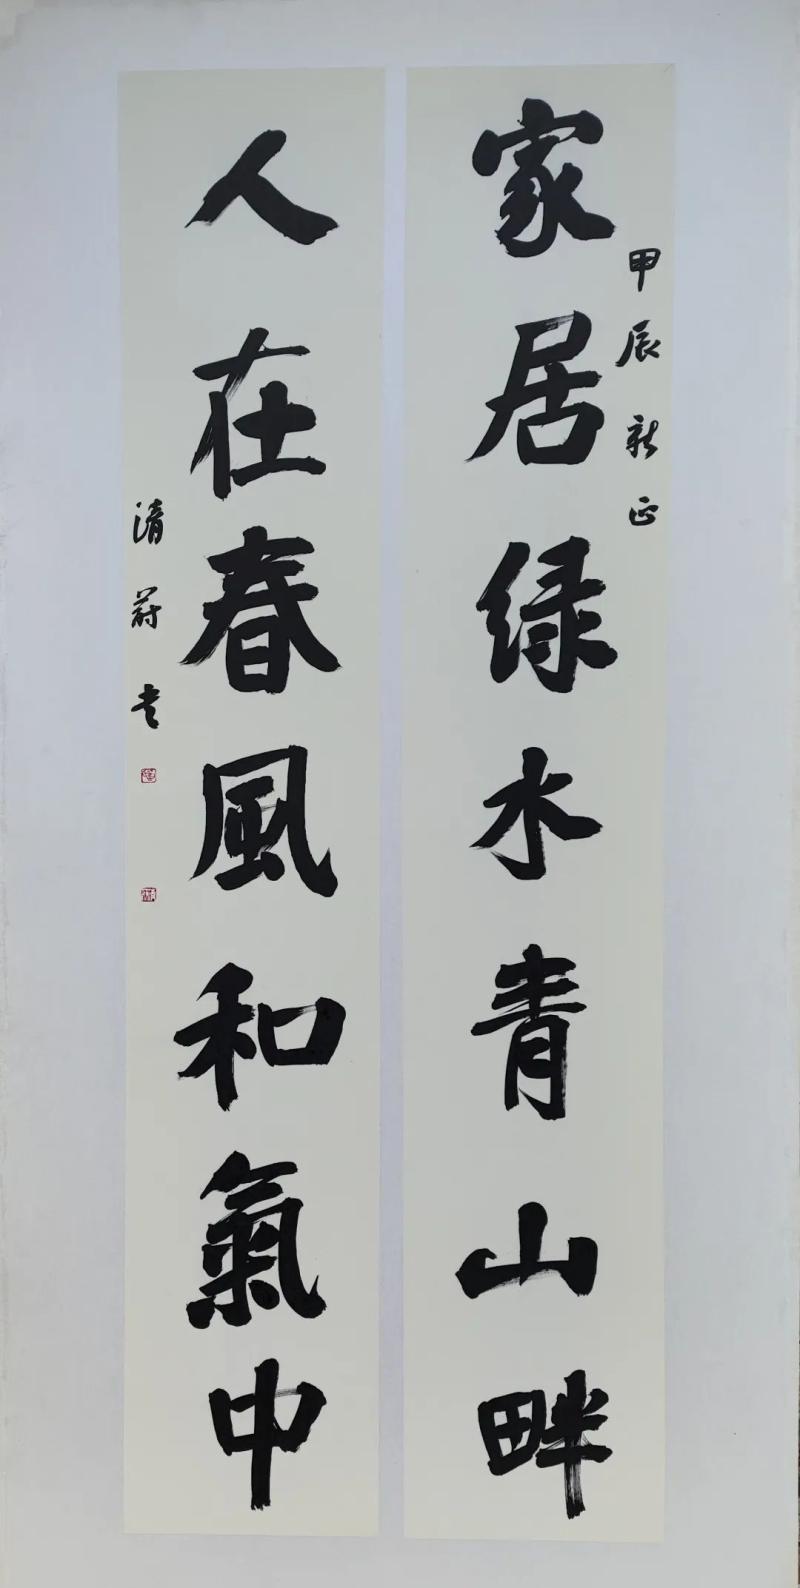 甲辰新正
家居绿水青山畔
人在春風和氣中
清蔚书